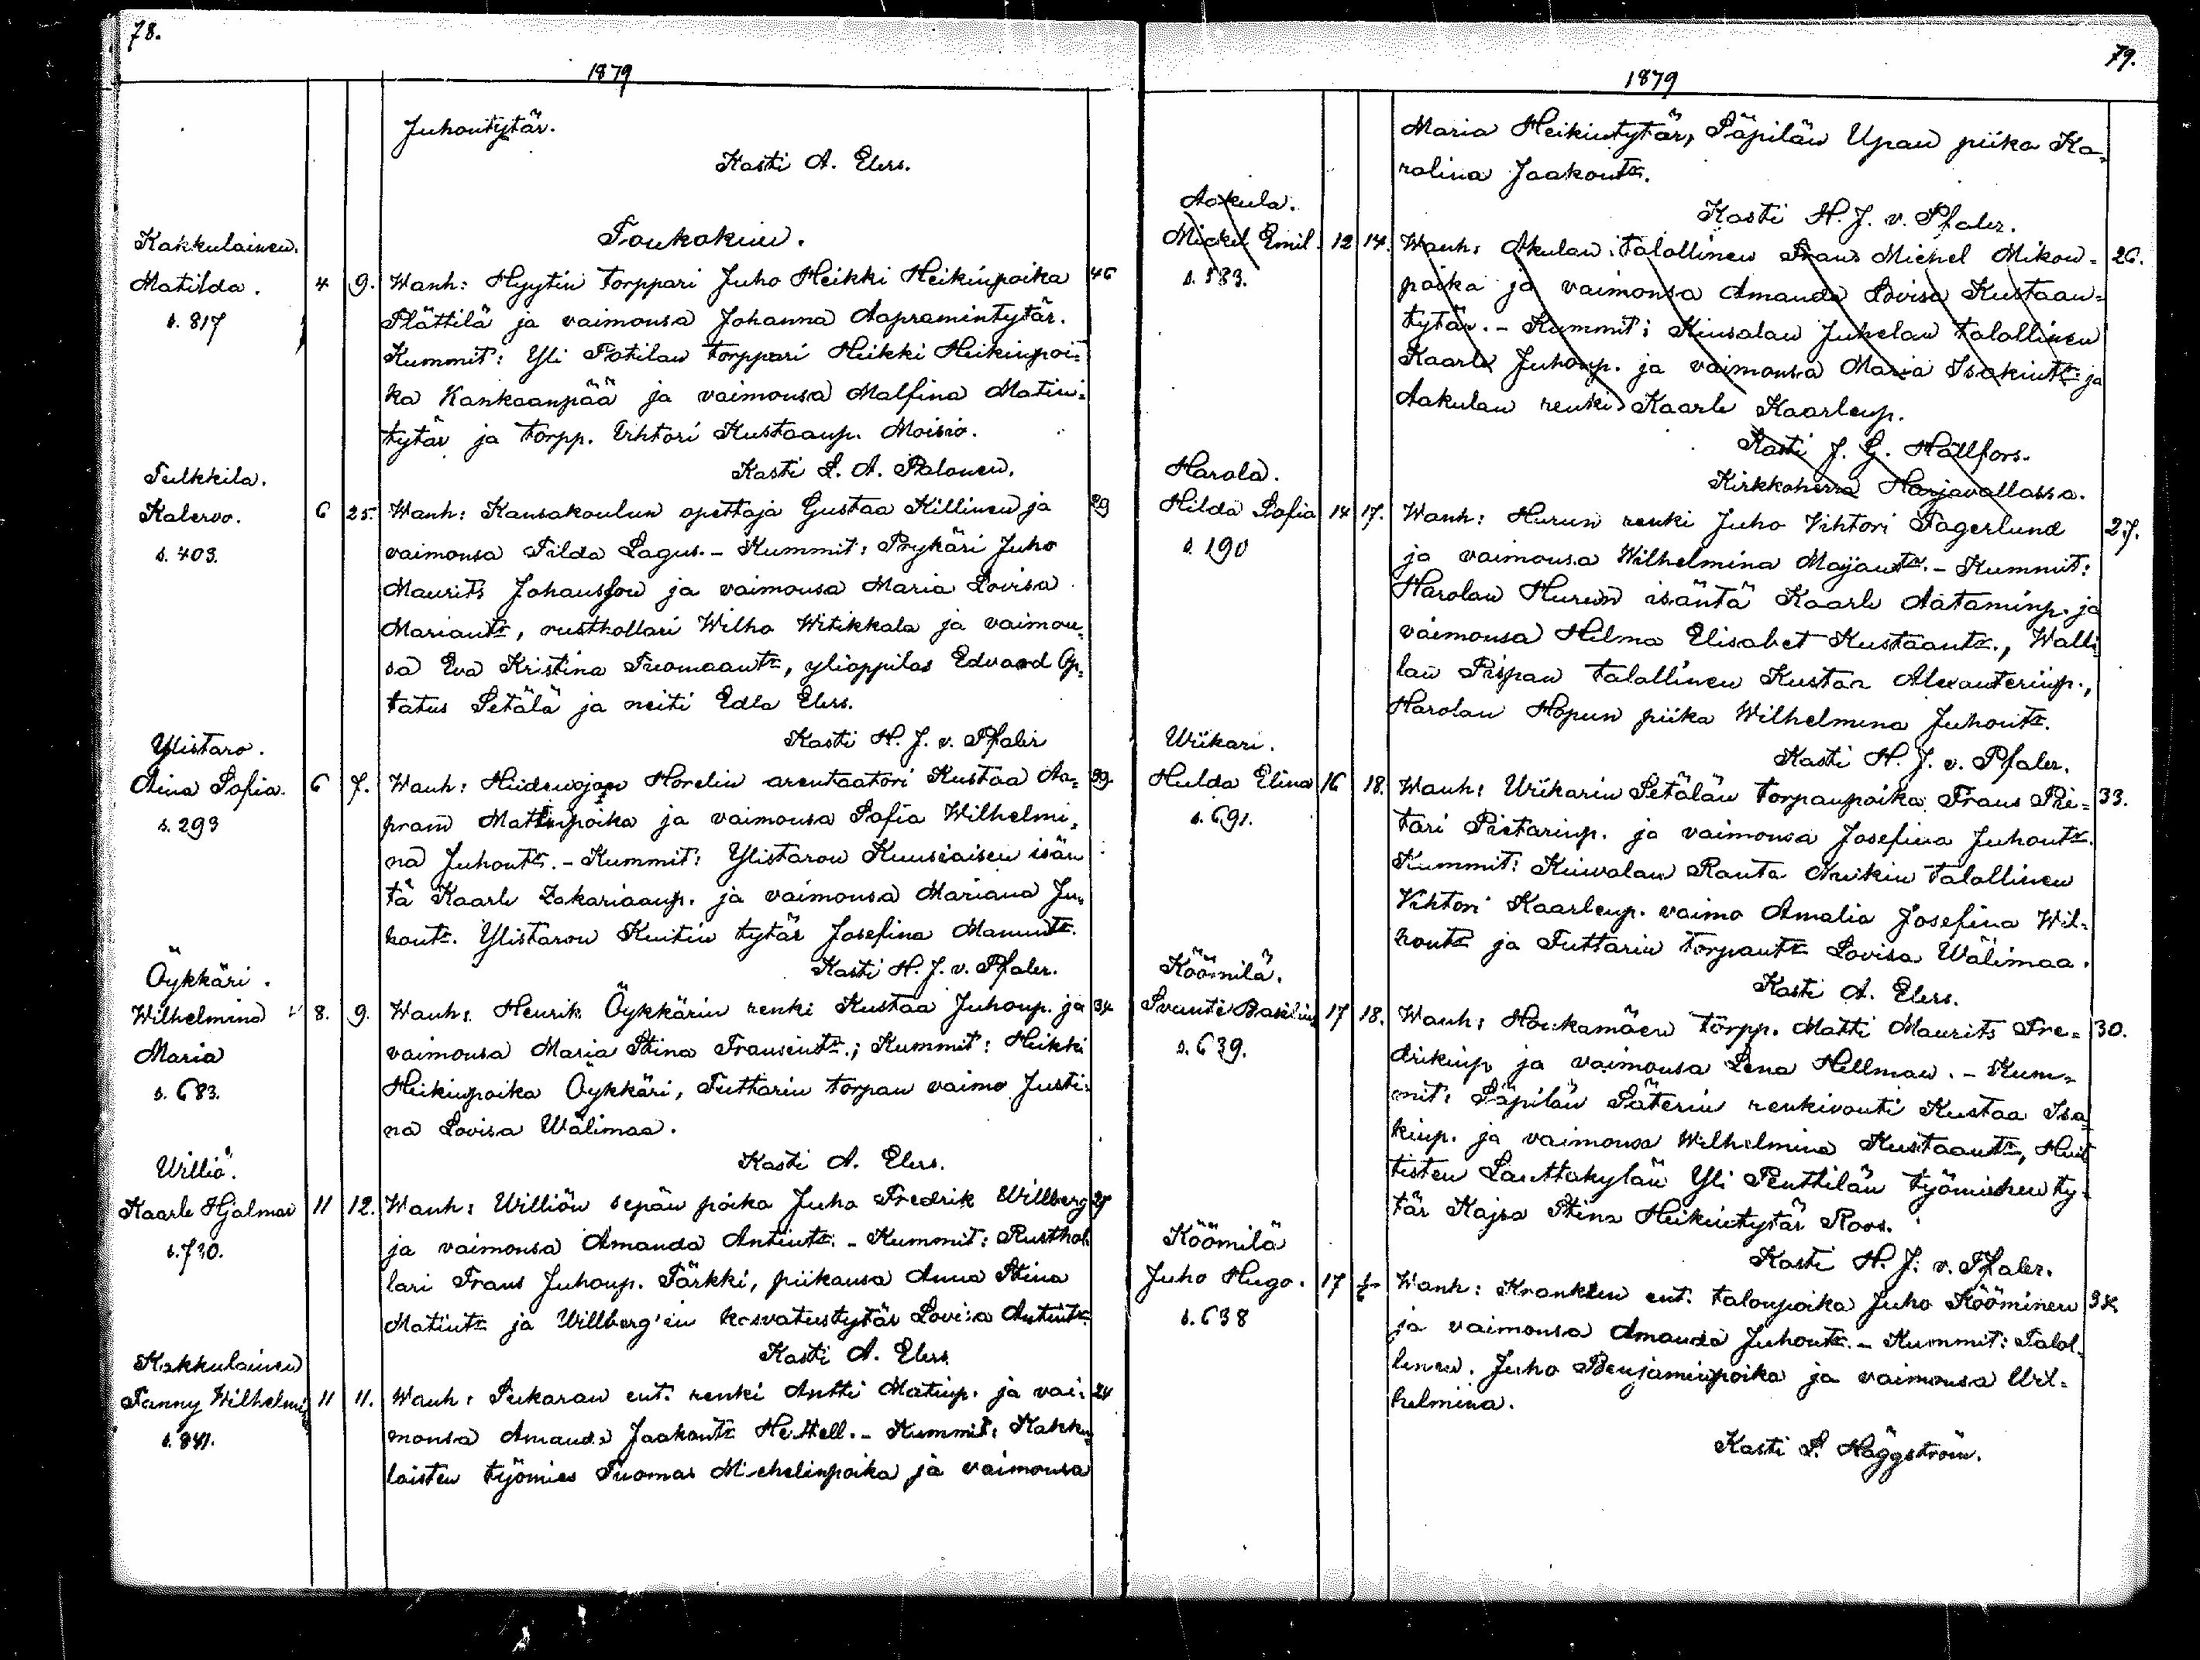 78.
1879
Juhontytär.
Kasti A. Elers.
Toukokuu.
Kakkulainen.
Matilda. 4 9. Wanh: Hyytin torppari Juho Heikki Heikinpoika 46
s. 817 Plättilä ja vaimonsa Johanna Aapramintytär.
Kummit: Yli Potilan torppari Heikki Heikinpoi-
ka Kankaanpää ja vaimonsa Malfina Matin-
tytär ja torpp. Vihtori Kustaanp. Moisio.
Kasti L. A. Palonen.
Tulkkila.
Kalervo. 6 25. Wanh: Kansakoulun opettaja Gustaa Killinen ja 29
s. 403. vaimonsa Tilda Lagus. - Kummit: Prykäri Juho
Maurits Johansson ja vaimonsa Maria Lovisa
Mariantr, rusthollari Wilho Witikkala ja vaimon-
sa Eva Kristina Tuomaantr, ylioppilas Edvard Op-
tatus Setälä ja neiti Edla Elers.
Kasti H. J. v. Pfaler
Ylistaro.
Aina Sofia. 6 7. Wanh: Hiidenojan Horelin arentaatori Kustaa Aa- 39.
s. 293 pram Matinpoika ja vaimonsa Sofia Wilhelmi-
na Juhontr. - Kummit: Ylistaron Kuusiaisen isän
tä Kaarle Zakariaanp. ja vaimonsa Mariana Ju-
hontr. Ylistaron Kuitin tytär Josefina Manuntr.
Kasti H. J. v. Pfaler.
Öykkäri.
Wilhelmina 8. 9. Wanh: Henrik Öykkärin renki Kustaa Juhonp. ja 34
Maria vaimonsa Maria Stina Fransintr.; Kummit: Heikki
s. 683. Heikinpoika Öykkäri, Tuttarin torpan vaimo Justi-
na Lovisa Wälimaa.
Kasti A. Elers.
Williö.
Kaarle Hjalmar 11 12. Wanh: Williön sepän poika Juho Fredrik Willberg 25
s. 730. ja vaimonsa Amanda Antintr. - Kummit: Rusthol
lari Frans Juhonp. Tärkki, piikansa Anna Stina
Matintr ja Willberg'in kasvatustytär Lovisa Antintr
Kasti A. Elers.
Kakkulainen
Fanny Wilhelmina 11 11. Wanh: Pukaran ent. renki Antti Matinp. ja vai- 24
s. 841. monsa Amanda Jaakontr Hettell. - Kummit: Kakku-
laisten työmies Tuomas Michelinpoika ja vaimonsa
79.
1879
Maria Heikintytär, Säpilän Upan piika Ka-
rolina Jaakontr.
Kasti H. J. v. Pfaler.
Aakula.
Mickel Emil. 12 14. Wanh: Akulan talollinen Frans Michel Mikon- 26.
s. 583. poika ja vaimonsa Amanda Lovisa Kustaan-
tytär. - Kummit: Kiusalan Juhelan talollinen
Kaarle Juhonp. ja vaimonsa Maria Isakintr. ja
Aakulan renki Kaarle Kaarlenp.
Kasti J. G. Hällfors.
Kirkkoherra Harjavallassa.
Harola.
Hilda Sofia 14 17. Wanh: Hurun renki Juho Vihtori Fagerlund 27.
s. 190 ja vaimonsa Wilhelmina Maijantr. - Kummit:
Harolan Hurun isäntä Kaarle Aataminp. ja
vaimonsa Helma Elisabet Kustaantr., Walli-
lan Pispan talollinen Kustaa Alexanterinp.,
Harolan Hopun piika Wilhelmina Juhontr.
Kasti H. J. v. Pfaler.
Wiikari.
Hulda Elina 16 18. Wanh: Wiikarin Setälän torpanpoika Frans Pie- 33.
s. 691. tari Pietarinp. ja vaimonsa Josefina Juhontr.
Kummit: Kiwalan Ranta Ankin talollinen
Vihtori Kaarlenp. vaimo Amalia Josefina Wil-
hontr ja Tuttarin torpantr Lovisa Wälimaa.
Kasti A. Elers.
Köömilä.
Svante Basilius 17 18. Wanh: Houkamäen torpp. Matti Maurits Fre- 30.
s. 639. drikinp ja vaimonsa Lena Hellman. - Kum-
mit: Säpilän Säterin renkivouti Kustaa Isa
kinp. ja vaimonsa Wilhelmina Kustaantr, Huit
tisten Lauttakylän Yli Penttilän työmiehen ty-
tär Kajsa Stina Heikintytär Roos.
Kasti H. J. v. Pfaler.
Köömilä
Juho Hugo. 17 Wanh: Kranklun ent. talonpoika Juho Kööminen 34
s. 638 ja vaimonsa Amanda Juhontr. - Kummit: Talol-
linen. Juho Benjaminpoika ja vaimonsa Wil-
helmiina.
Kasti L. Häggström.